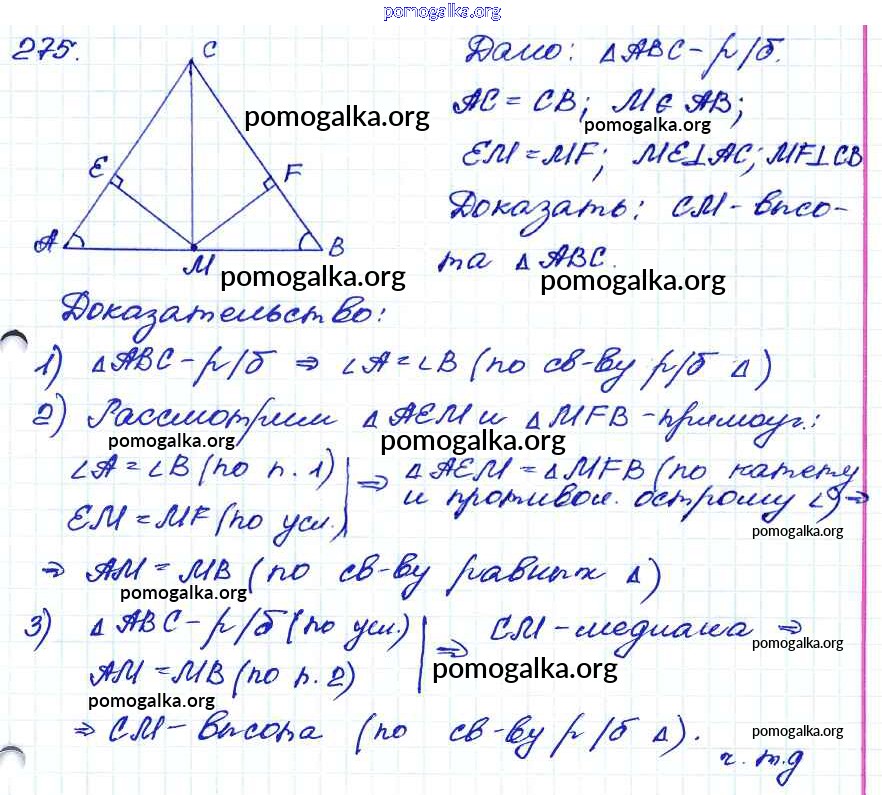 pomogalka.org
275.
C
E
F
A
B
M
pomogalka.org
pomogalka.org
Дано: △ABC - р/б.
AC = CB; M ∈ AB;
pomogalka.org
EM = MF; ME⊥AC; MF⊥CB
Доказать: CM - высо-
та △ABC.
pomogalka.org
Доказательство:
1) △ABC - р/б ⇒ ∠A = ∠B (по св-ву р/б △)
2) Рассмотрим △AEM и △MFB - прямоуг.:
pomogalka.org
pomogalka.org
∠A = ∠B (по п. 1)
EM = MF (по усл.)
⇒ △AEM = △MFB (по катету
и противол. острому ∠) ⇒
pomogalka.org
⇒ AM = MB (по св-ву равных △)
pomogalka.org
3) △ABC - р/б (по усл.)
AM = MB (по п. 2)
⇒ CM - медиана ⇒
pomogalka.org
pomogalka.org
pomogalka.org
⇒ CM - высота (по св-ву р/б △).
pomogalka.org
ч.т.д